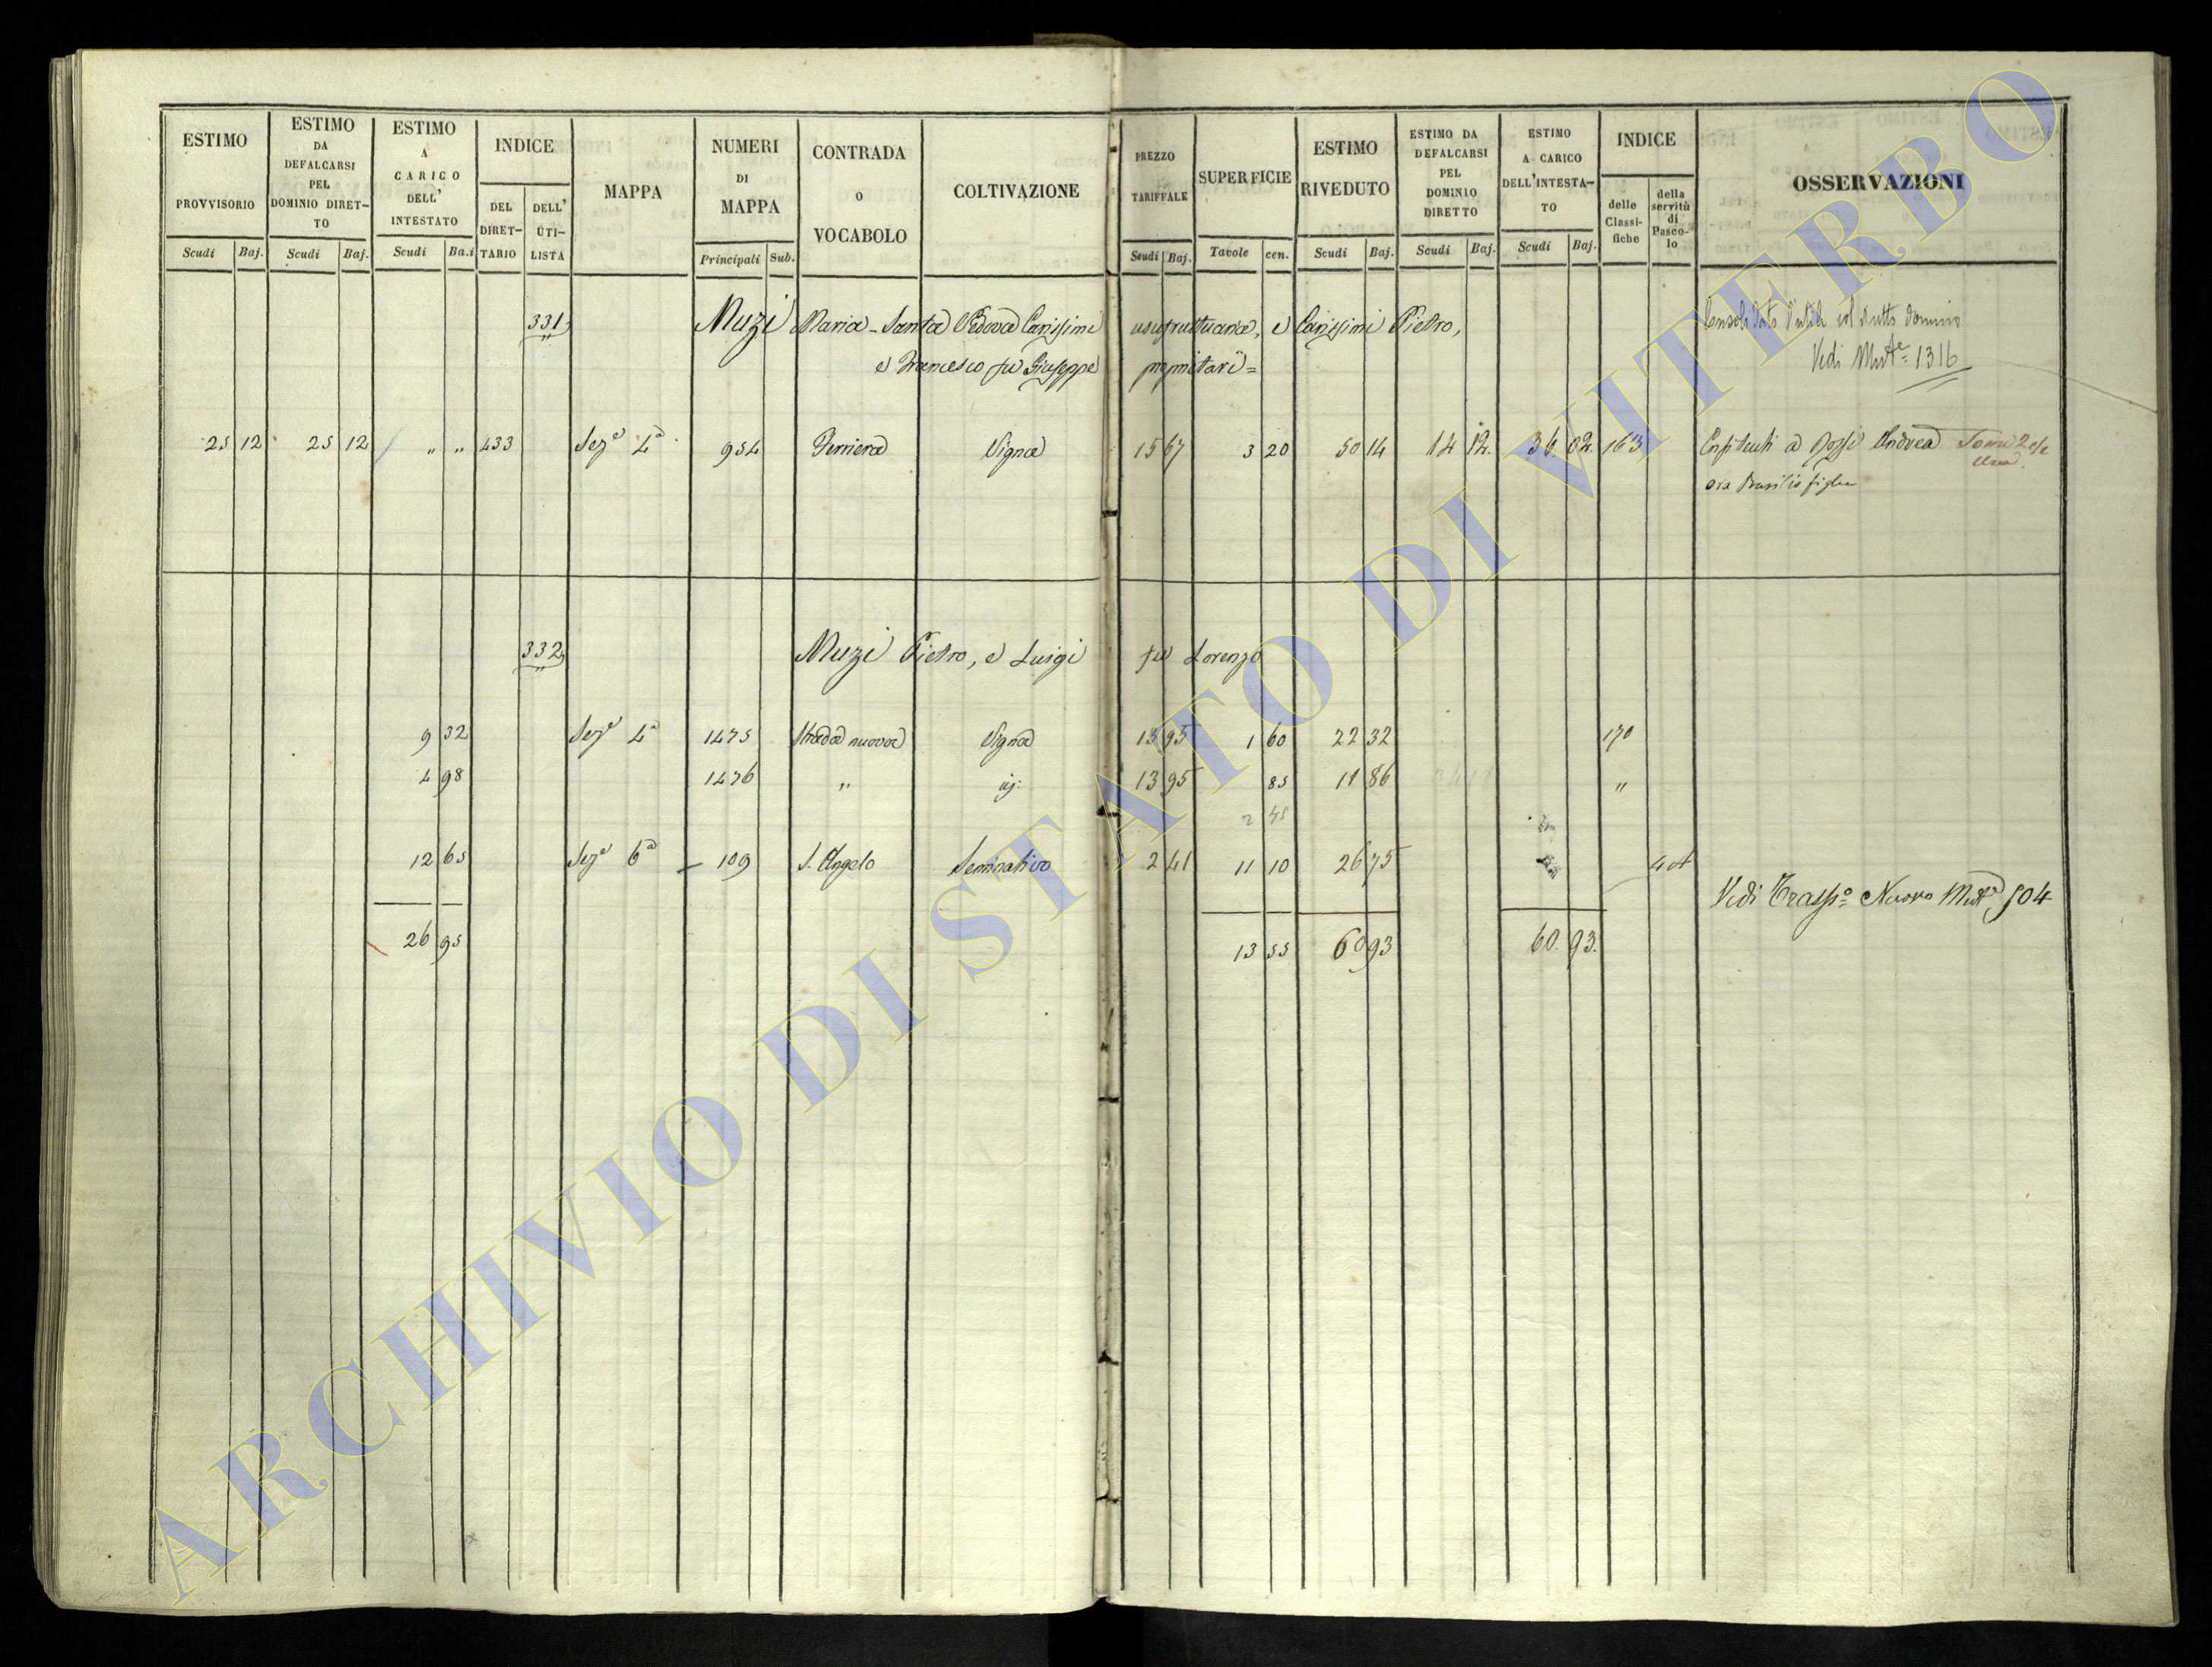 ESTIMO PROVVISORIO
Scudi Baj.
ESTIMO DA DEFALCARSI PEL DOMINIO DIRET-TO
Scudi Baj.
ESTIMO A CARICO DELL' INTESTATO
Scudi Ba.i
INDICE
DEL DIRET-TARIO
DELL' UTI-LISTA
MAPPA
NUMERI DI MAPPA
Principali Sub.
CONTRADA o VOCABOLO
COLTIVAZIONE
PREZZO TARIFFALE
Scudi Baj.
SUPERFICIE
Tavole cen.
ESTIMO RIVEDUTO
Scudi Baj.
ESTIMO DA DEFALCARSI PEL DOMINIO DIRETTO
Scudi Baj.
ESTIMO A CARICO DELL'INTESTA-TO
Scudi Baj.
INDICE
delle Classi-fiche
della servitù di Pasco-lo
OSSERVAZIONI
331 Muzi Maria-Santa Vedova Carissimi usufruttuaria, e Carissimi Pietro,
e Francesco fu Giuseppe proprietari=
Consolidato l'utile col dirett° dominio
Vedi Mut.e 1316
25 12 25 12 " " 433 Sez.e 4a 954 Ferriera Vigna 15 67 3 20 50 14 14 12 36 02 163 a Andrea
332 Muzi Pietro, e Luigi fu Lorenzo
9 32 Sez.e 4a 1475 Strada nuova Vigna 13 95 1 60 22 32 170
4 98 1476 " id. 13 95 85 11 86 "
2 45
12 65 Sez.e 6a 109 S. Angelo Seminativo 2 41 11 10 26 75
Vedi Trasp.o Nuovo Mut.a 504
26 95 13 55 60 93 60. 93.
ARCHIVIO DI STATO DI VITERBO